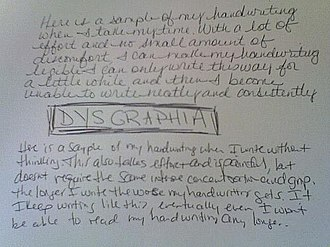 Here is a sample of my handwriting
when I take my time. With a lot of
effort and no small amount of
discomfort I can make my handwriting
legible. I can only write this way for
a little while and then I become
unable to write neatly and consistently
DYSGRAPHIA
Here is a sample of my handwriting when I write without
thinking. This also takes effort and is painful, but
doesn't require the same intense concentration and grip.
the longer I write the worse my handwriting gets. If
I keep writing like this, eventually even I won't
be able to read my handwriting any longer.